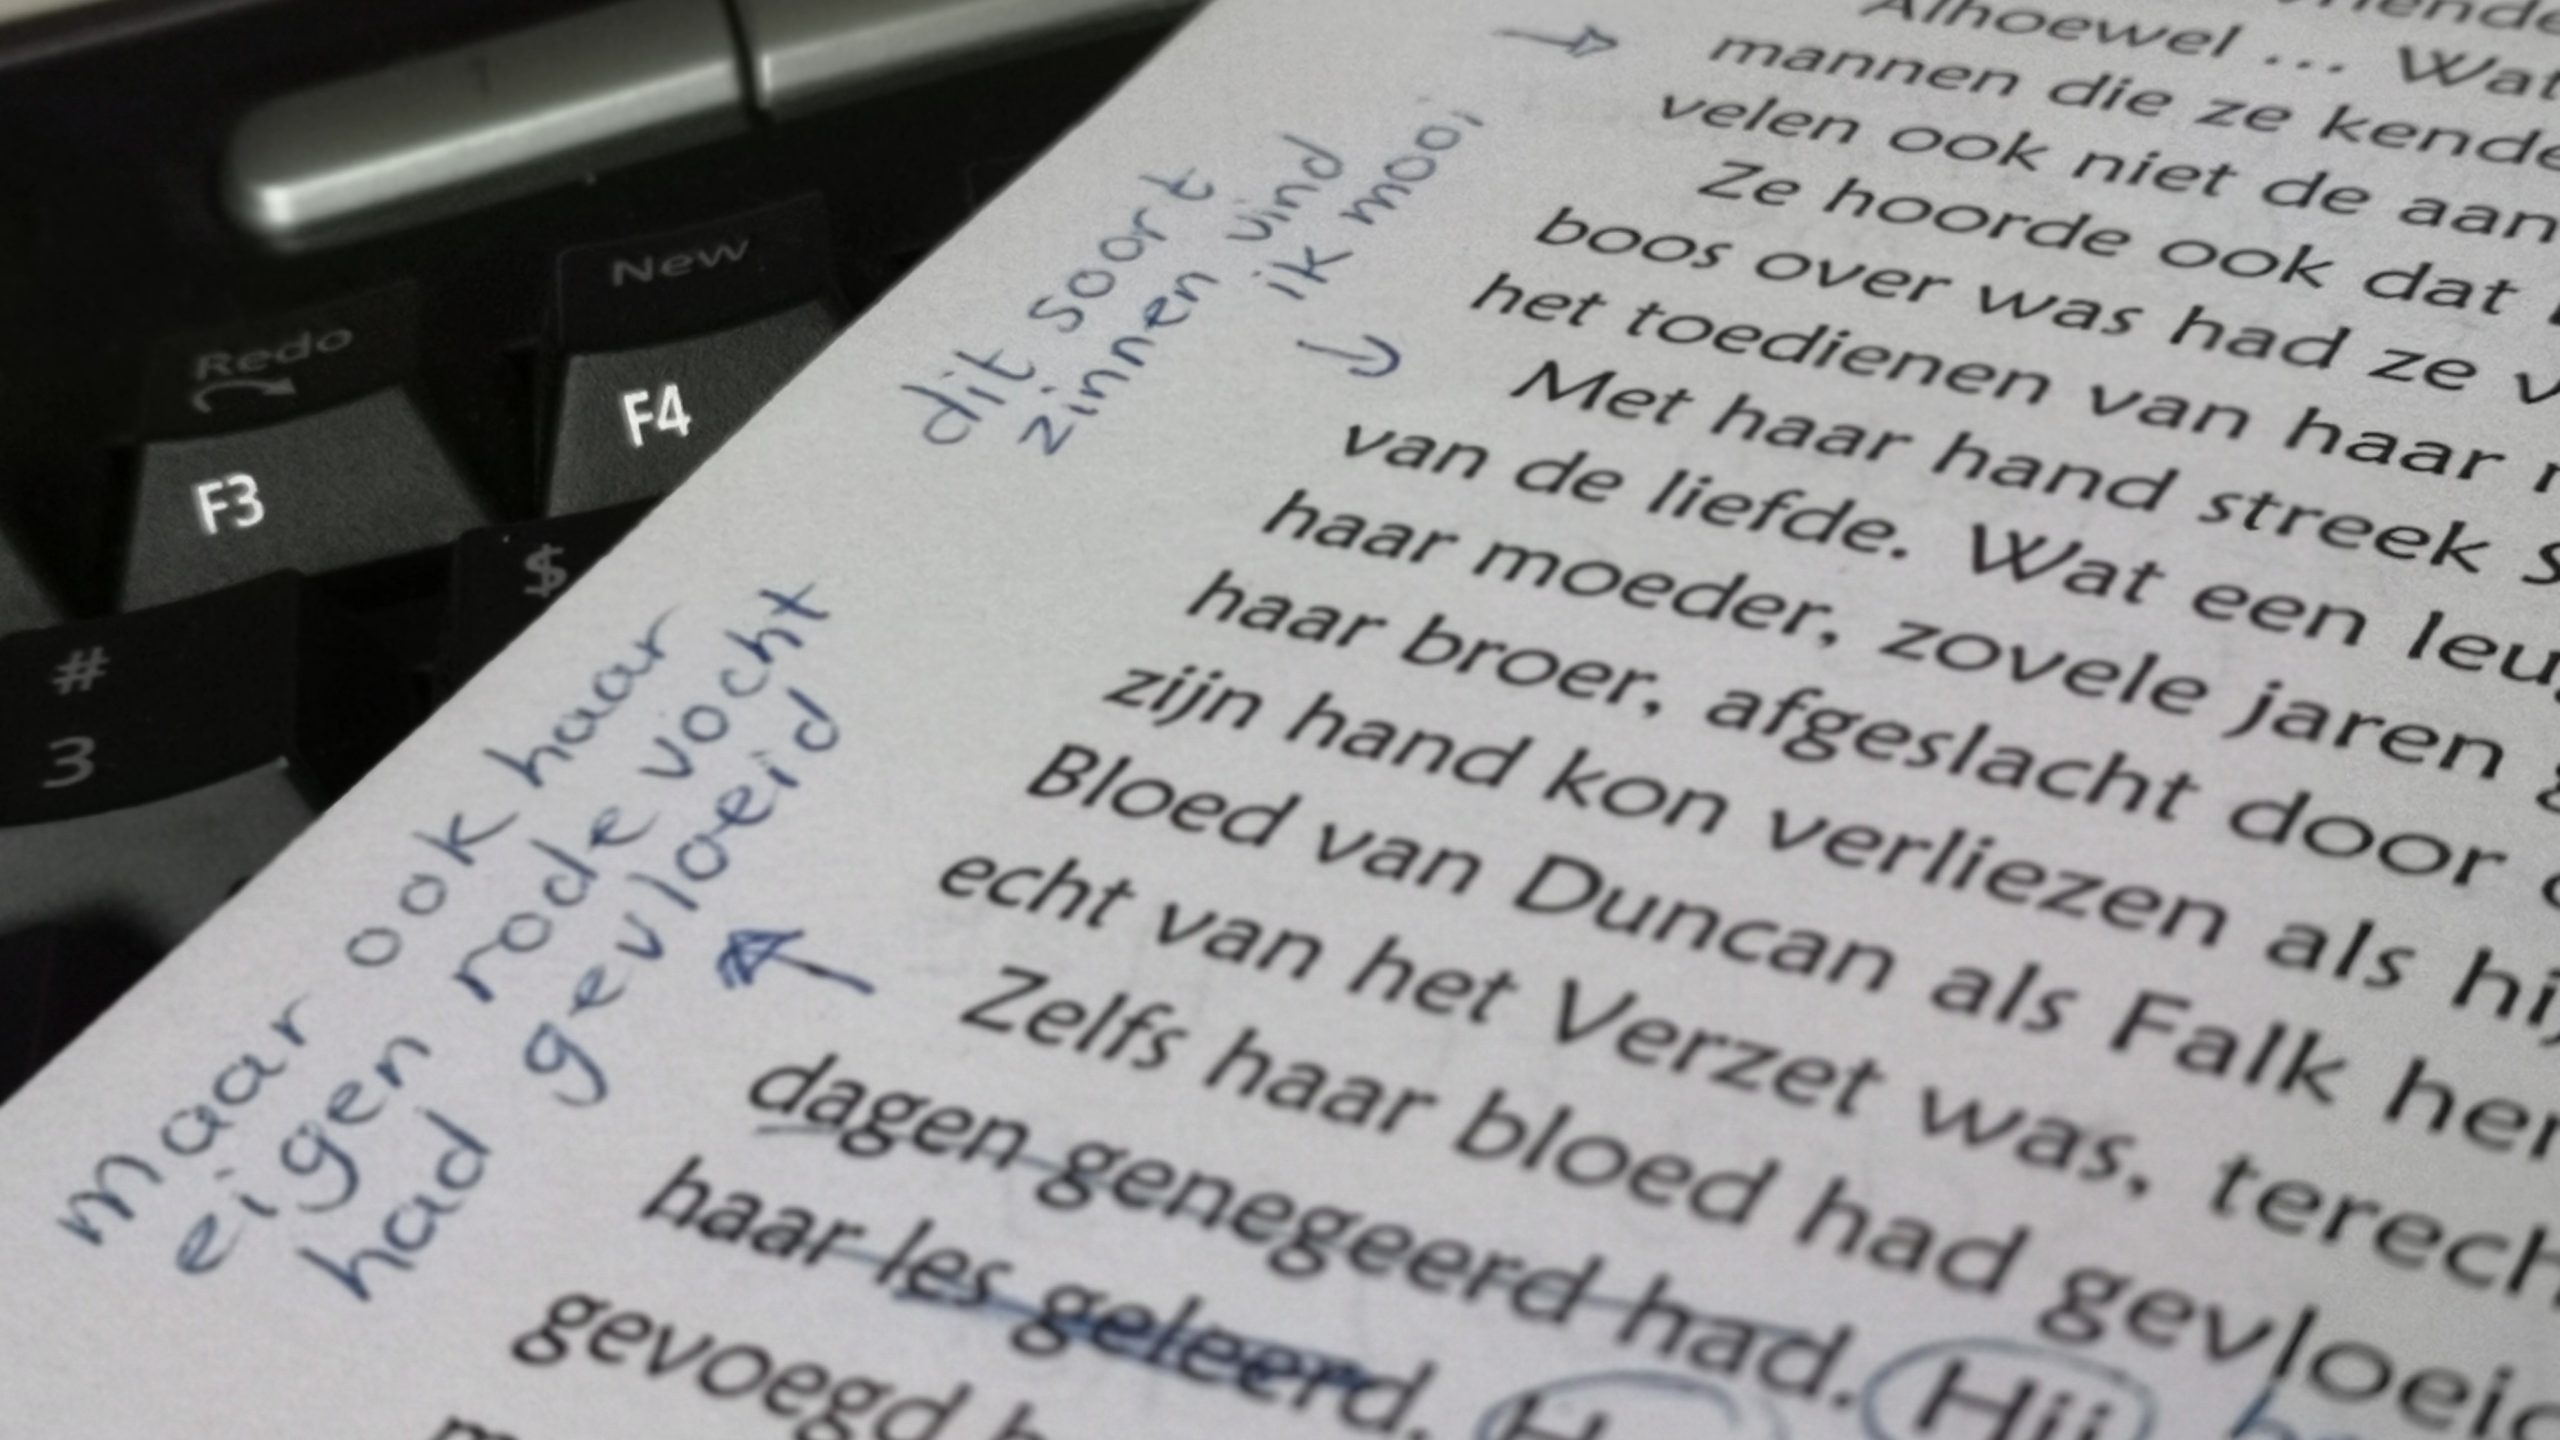 Redo
New
F3
F4
$
#
3
dit soort
zinnen vind
ik mooi
maar ook haar
eigen rode vocht
had gevloeid
Alhoewel ... Wat
mannen die ze kende
velen ook niet de aan
Ze hoorde ook dat
boos over was had ze v
het toedienen van haar
Met haar hand streek s
van de liefde. Wat een leu
haar moeder, zovele jaren g
haar broer, afgeslacht door
zijn hand kon verliezen als hij
Bloed van Duncan als Falk her
echt van het Verzet was, terech
Zelfs haar bloed had gevloeid
dagen genegeerd had. Hij
haar les geleerd. H
gevoegd h